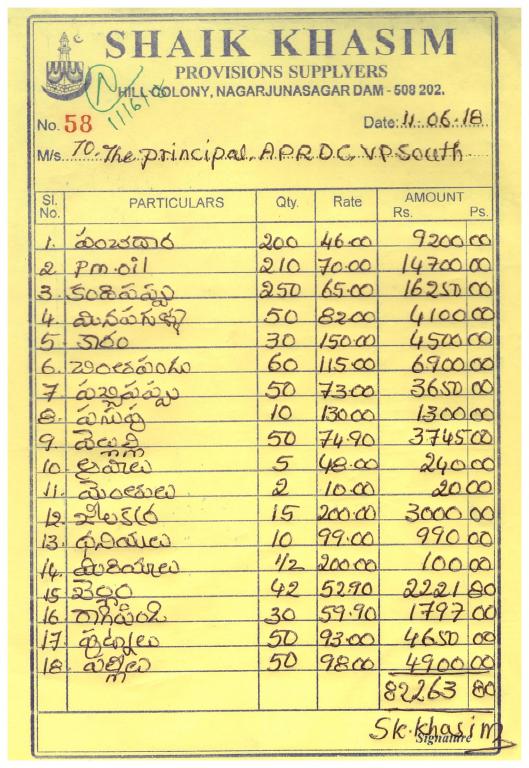 SHAIK KHASIM
PROVISIONS SUPPLYERS
HILL COLONY, NAGARJUNASAGAR DAM - 508 202.
No. 58 Date: 11.06.18
M/s To. The principal, APRDC, VP South
Sl. No. PARTICULARS Qty. Rate AMOUNT Rs. Ps.
1. పంచదార 200 46.00 9200 00
2. Pm.oil 210 70.00 14700 00
3. కందిపప్పు 250 65.00 16250 00
4. మినపగుళ్ళు 50 82.00 4100 00
5. కారం 30 150.00 4500 00
6. చింతపండు 60 115.00 6900 00
7. పప్పు 50 73.00 3650 00
8. పసుపు 10 130.00 1300 00
9. వెల్లుల్లి 50 74.90 3745 00
10. ఆవాలు 5 48.00 240 00
11. మెంతులు 2 10.00 20 00
12. జీలకర్ర 15 200.00 3000 00
13. ధనియాలు 10 99.00 990 00
14. మిరియాలు 1/2 200.00 100 00
15 బెల్లం 42 52.90 2221 80
16 రాగిపిండి 30 59.90 1797 00
17 పుట్నాలు 50 93.00 4650 00
18. పల్లీలు 50 98.00 4900 00
82263 80
Sk. khasim
Signature